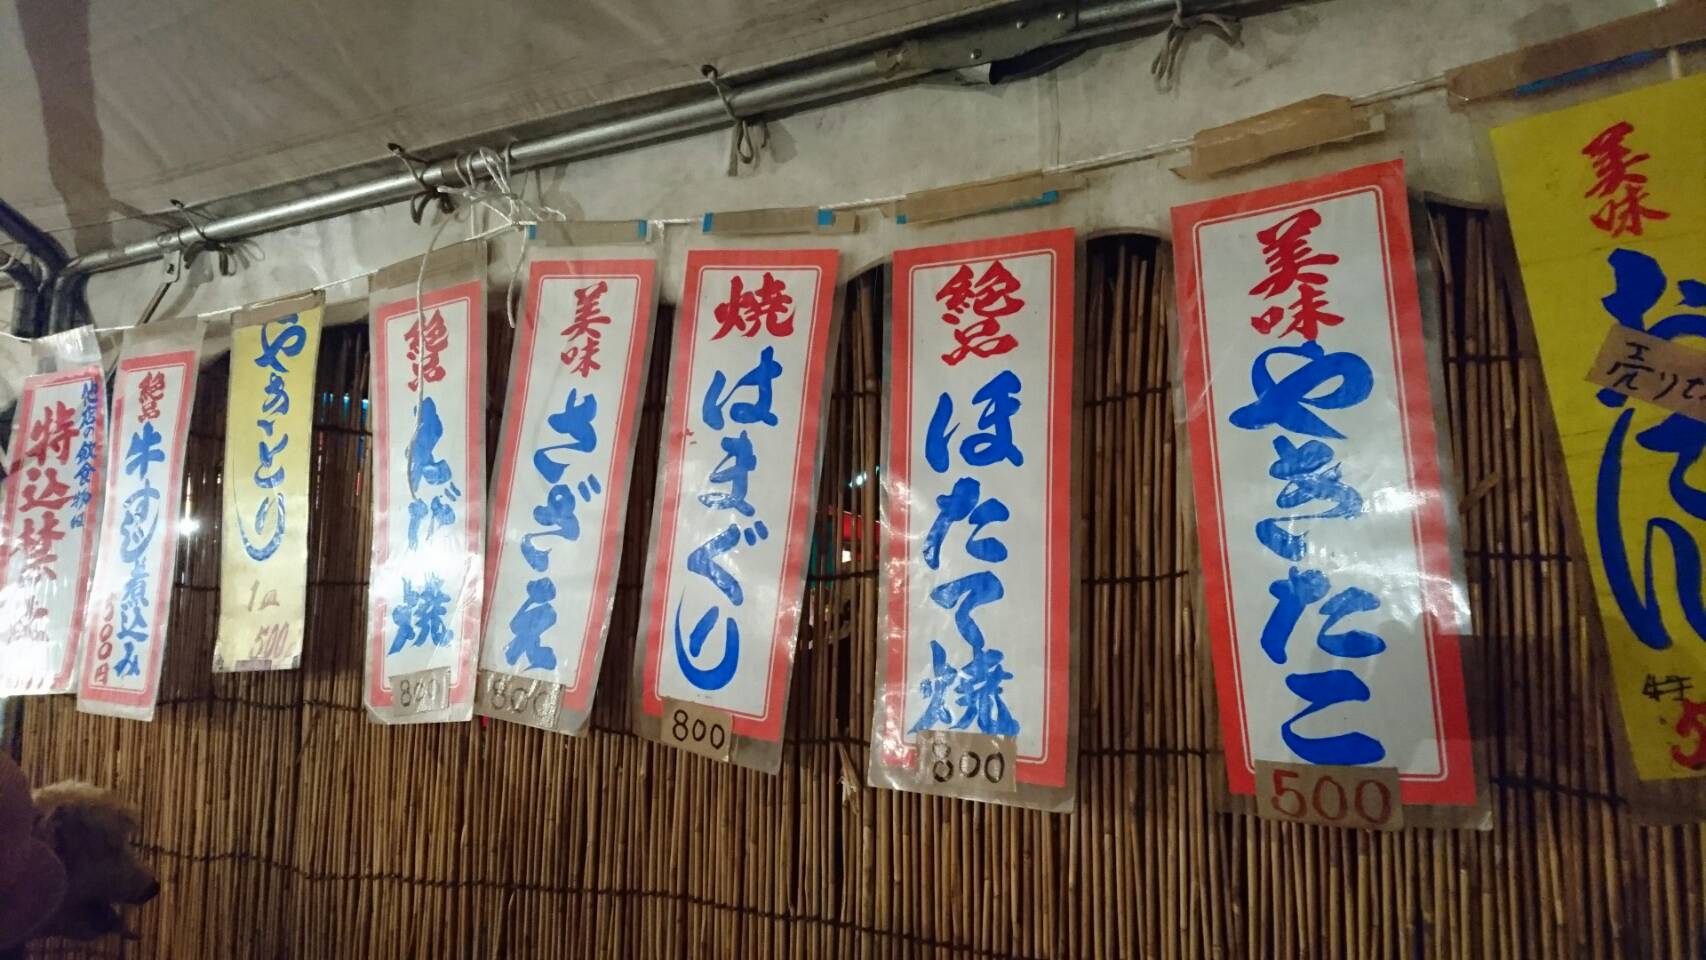 他店の飲食物は
特込禁
絶品
牛すじ煮込み
500円
やきとり
1皿
500
絶品
えび焼
800
美味
さざえ
800
焼
はまぐり
800
絶品
ほたて焼
800
美味
やきたこ
500
美味
売り